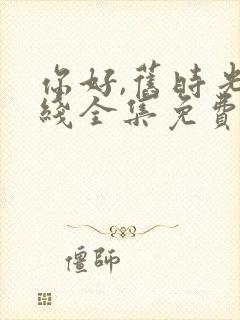 你好,舊時光
綫全集免費
僵師